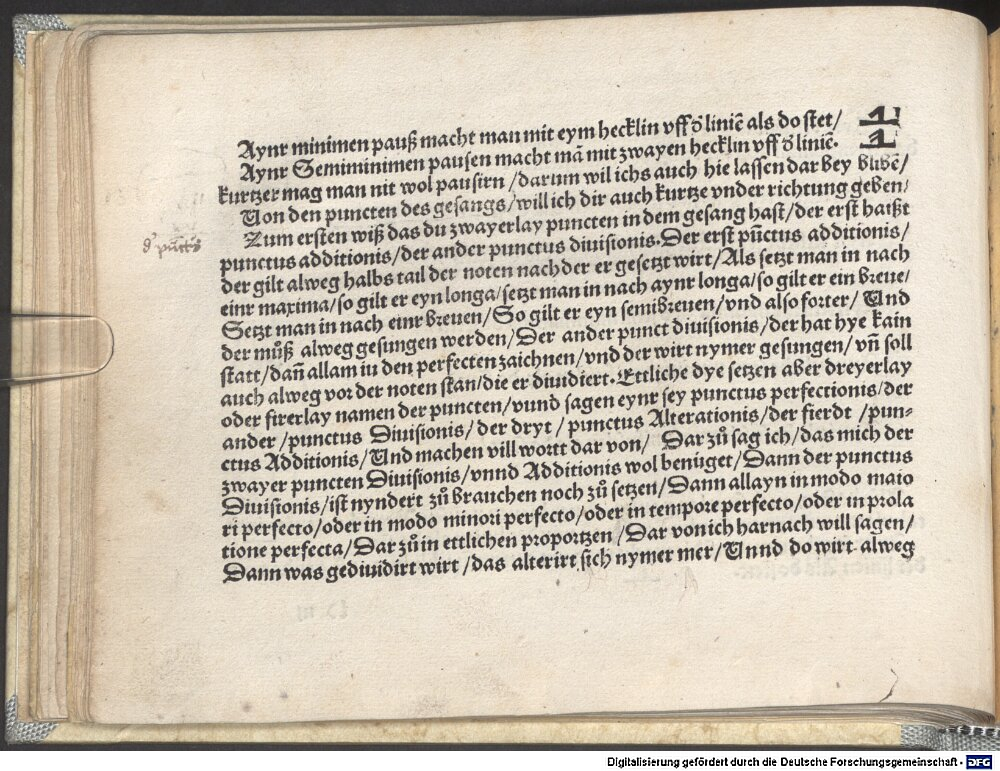 Aynr minimen pauß macht man mit eym hecklin vff d̄ liniē als do stet/
Aynr Semiminimen pausen macht mā mit zwayen hecklin vff d̄ liniē.
kurtzer mag man nit wol pausirn/darum wil ichs auch hie lassen dar bey blibē/
Von den puncten des gesangs/will ich dir auch kurtze vnder richtung geben/
Zum ersten wiß das du zwayerlay puncten in dem gesang hast/der erst haißt
punctus additionis/der ander punctus diuisionis.Der erst pūctus additionis/
der gilt alweg halbs tail der noten nach der er gesetzt wirt/Als setzt man in nach
einr maxima/so gilt er eyn longa/setzt man in nach aynr longa/so gilt er ein breue/
Setzt man in nach einr breuen/So gilt er eyn semibreuen/vnd also forter/Vnd
der můß alweg gesungen werden/Der ander punct diuisionis/der hat hye kain
statt/dañ allam in den perfecten zaichnen/vnd der wirt nymer gesungen/vñ soll
auch alweg vor der noten stan/die er diuidiert.Ettliche dye setzen aber dreyerlay
oder firerlay namen der puncten/vnnd sagen eynr sey punctus perfectionis/der
ander/punctus Diuisionis/der dryt/punctus Alterationis/der fierdt/pun-
ctus Additionis/Vnd machen vill wortt dar von/Dar zů sag ich/das mich der
zwayer puncten Diuisionis/vnnd Additionis wol benüget/Dann der punctus
Diuisionis/ist nyndert zů brauchen noch zů setzen/Dann allayn in modo maio
ri perfecto/oder in modo minori perfecto/oder in tempore perfecto/oder in prola
tione perfecta/Dar zů in ettlichen proportzen/Dar von ich harnach will sagen/
Dann was gediuidirt wirt/das alterirt sich nymer mer/Vnnd do wirt alweg
Digitalisierung gefördert durch die Deutsche Forschungsgemeinschaft - DFG